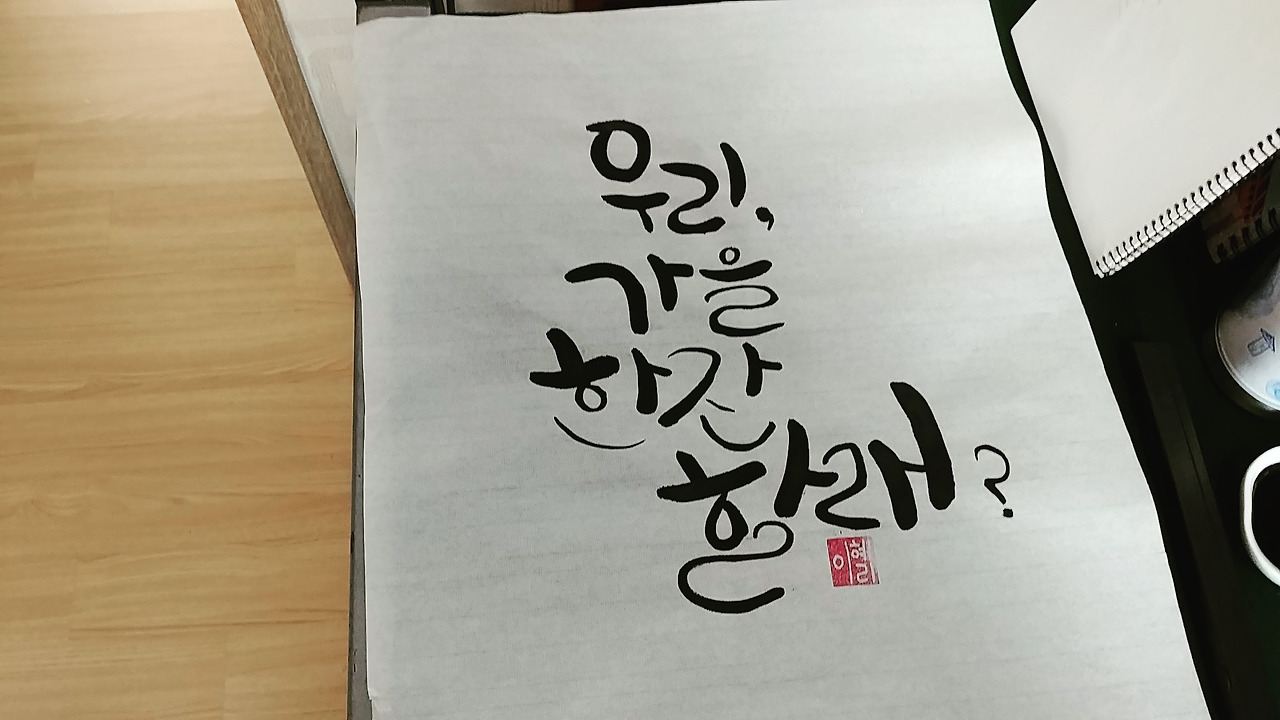 우리,
가을
한잔
할래?